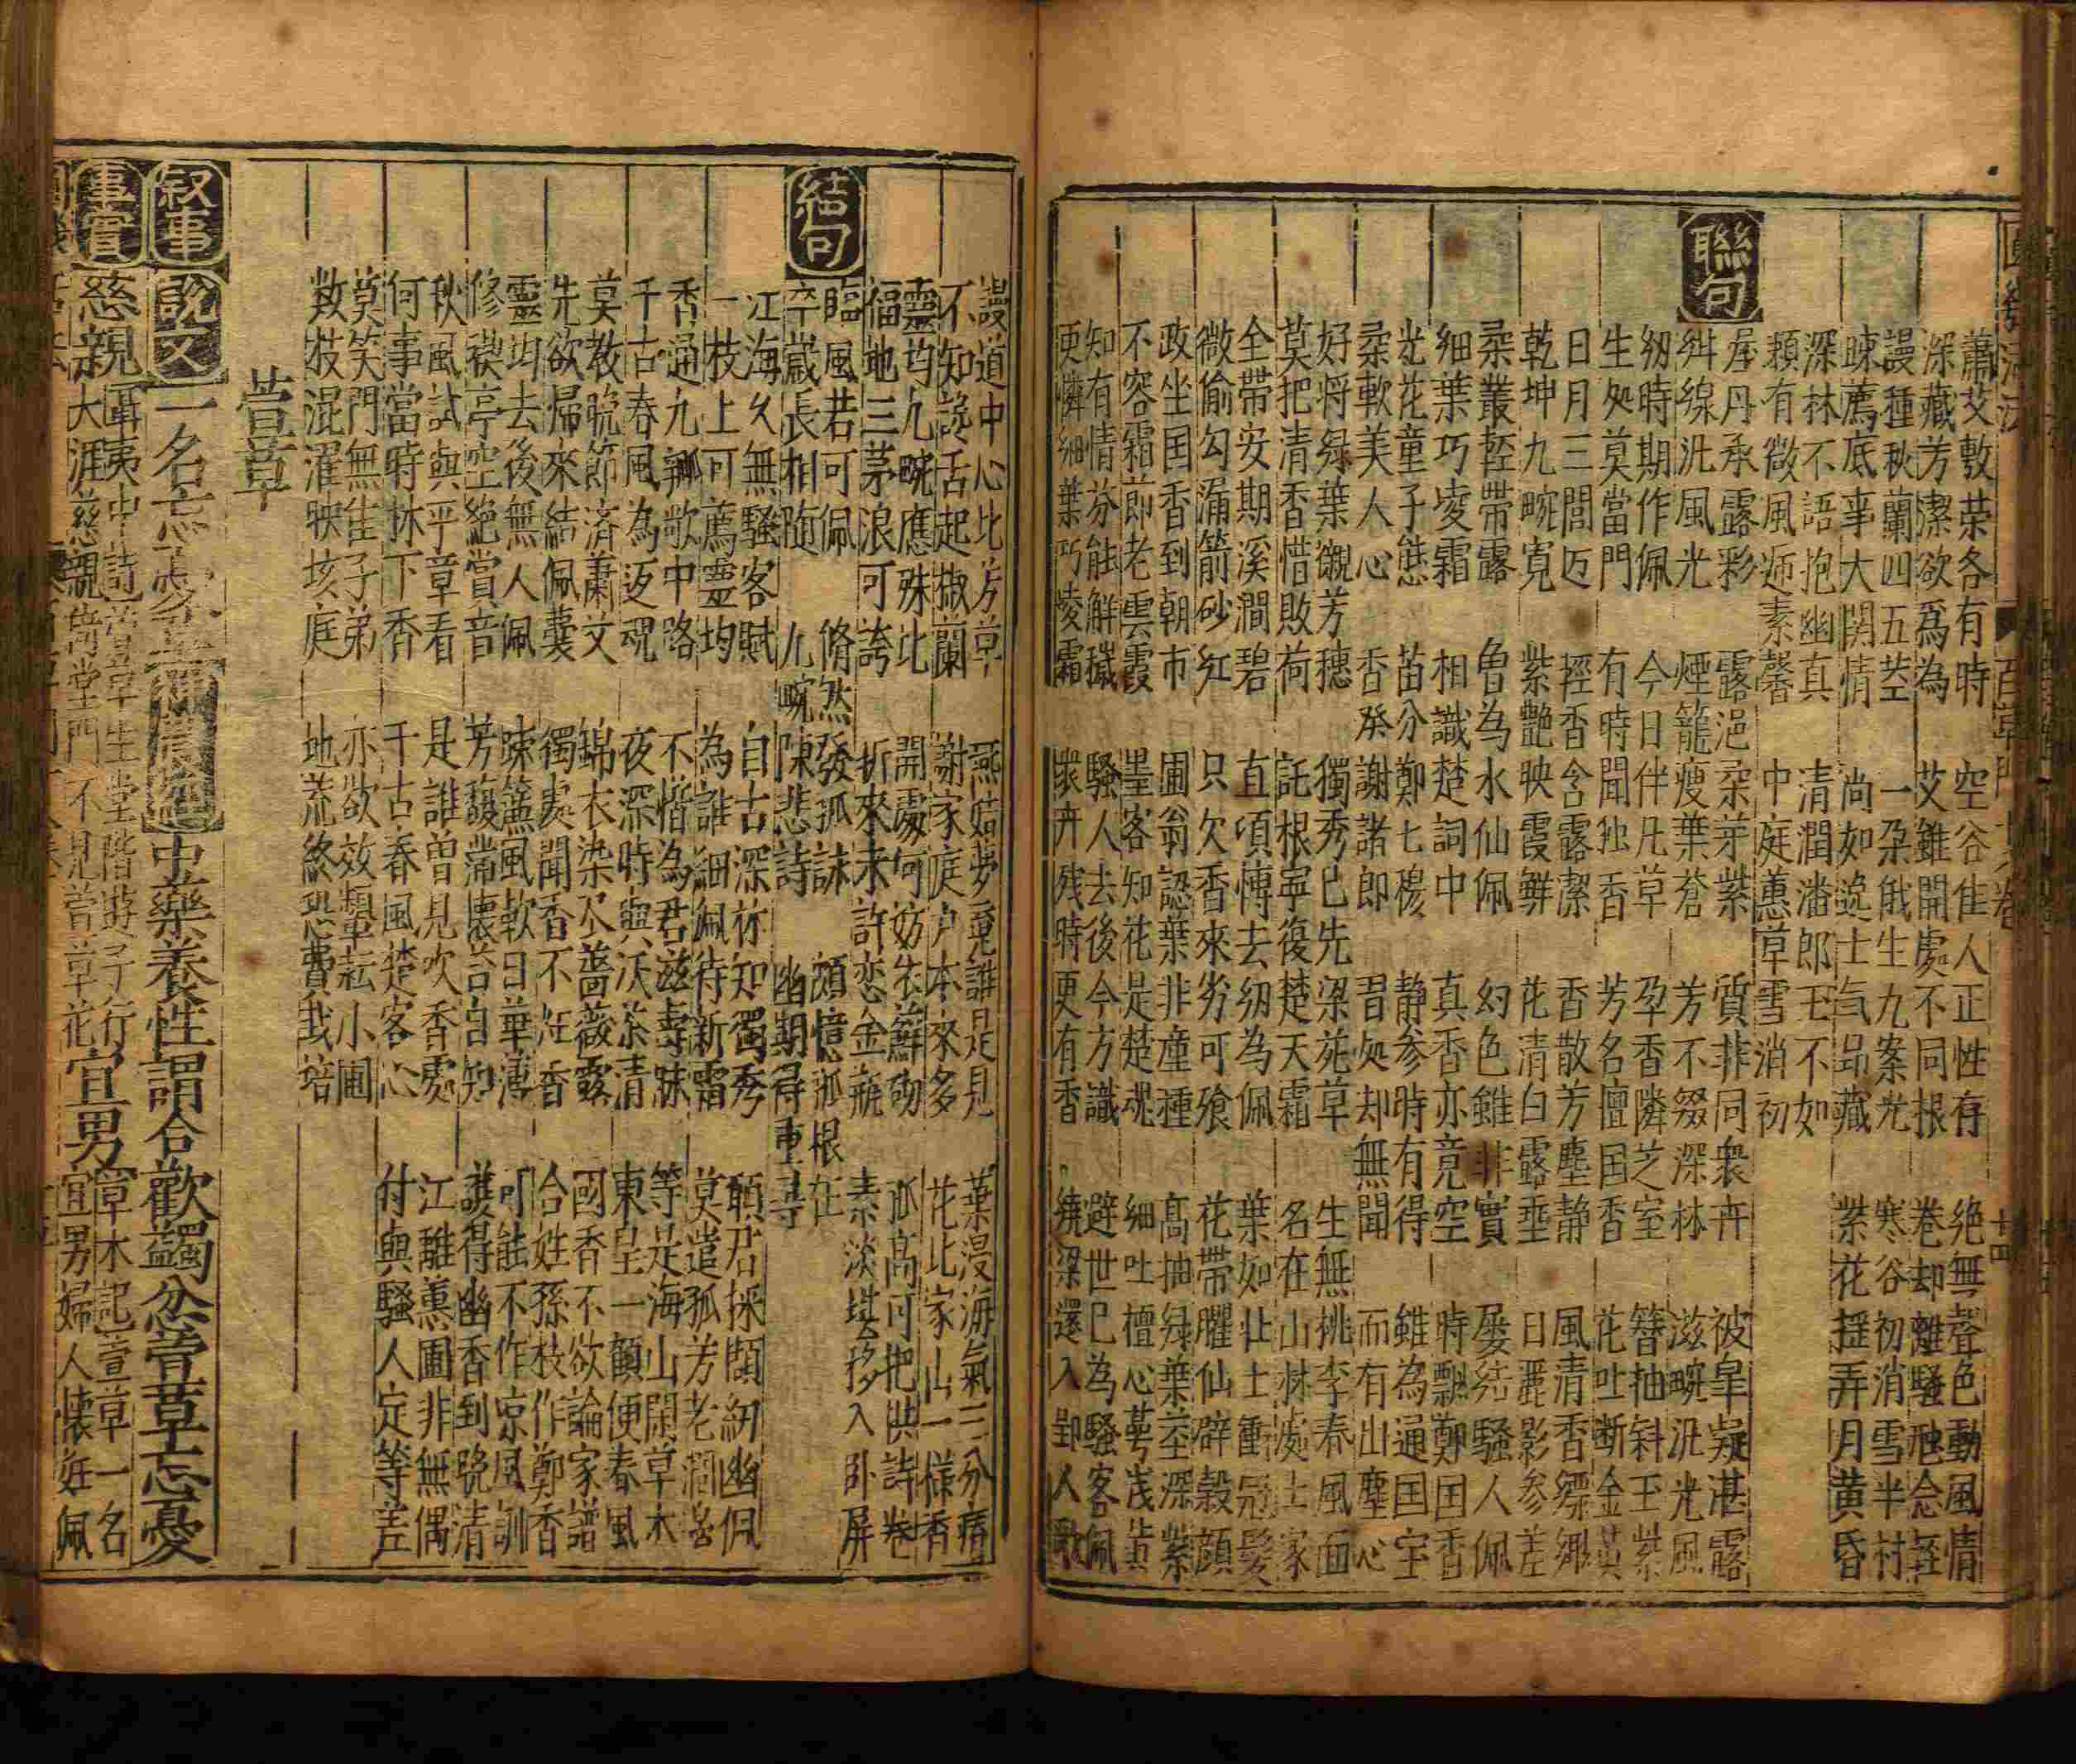 圓機活法 百草門 十八卷 十四
蕭艾敷荣各有時 空谷佳人正性存 絶無聲色動風情
深藏芳潔欲爲為 艾雖開處不同根 卷却離騷兜念輊
謾種秋蘭四五莖 一朶俄生九案光 寒谷初消雪半村
踈薦底事大関情 尚如逸士氣品藏 紫花揺弄月黄昏
深林不語抱幽真 清潤潘郎玉不如
頼有微風逓素馨 中庭蕙草雪消初
聯句
丹承露彩 露浥朶芽紫 質非同衆卉 被皐凝湛露
線汎風光 煙籠瘦葉蒼 芳不綴深林 滋畹汎光風
紉時期作佩 今日伴凡草 孕香隣芝室 簪抽斜玉紫
生処莫當門 有時聞独香 芳名擅国香 花吐断金黄
日月三閭迈 輕香含露潔 香散芳塵静 風清香縹緲
乾坤九畹寛 紫艶映霞鮮 花清白露垂 日麗影参差
朶叢輕帶露 魯為水仙佩 幻色雖非實 屡結騷人佩
細葉巧凌霜 相識楚詞中 真香亦竟空 時飄鄭国香
花童子態 苗分鄭七穆 静参時有得 雖為通国宝
朶軟美人心 香癸謝諸郎 君処却無聞 而有出塵心
好将緑葉襯芳穗 獨秀已先梁苑草 生無桃李春風面
莫把清香惜敗荷 託根寧復楚天霜 名在山林處士家
全帶安期溪澗碧 直項慱去紉為佩 葉如壮士衝冠髪
微偷勾漏箭砂紅 只欠香來劣可飱 花帶臞仙辟穀顔
政坐国香到朝市 圃翁認葉非蘆種 高抽緑葉莖深紫
不容霜節老雲霞 墨客知花是楚魂 細吐檀心萼浅黄
知有情芬能解穢 騷人去後今方識 避世已為騷客佩
更憐細葉巧凌霜 衆卉残時更有香 繞梁還入郢人歌
謾道中心比芳草 燕姞夢竟誰是見 葉浸海氣三分瘠
不知讒舌起椒蘭 謝家庭户本來多 花比家山一樣香
靈均九畹應殊比 開處何妨依蘚砌 孤高可把供詩卷
福地三茅浪可誇 折來未許恋金瓶 素淡堪移入卧屏
結句
臨風若可佩 脩然發孤詠 頗憶孤根在
卒歲長相随 九畹陳悲詩 幽期得重尋
江海久無騷客賦 自古深林知獨秀 願君採紉幽佩
一枝上可薦靈均 為誰細佩待新霜 莫遣孤芳老澗
香通九歆中路 不惜為君滋夀昧 等是海山閑草木
千古春風為返魂 夜深時與沃茶清 東皇一顧便春風
莫教晩節済蕭文 錦衣染尽薔薇露 國香不欲論家譜
先欲歸來結佩囊 獨處聞香不炷香 合姓孫枝作鄭香
靈均去後無人佩 踈簾風軟日華薄 可能不作凉風訓
修禊亭空絶賞音 芳馥常懷苦自知 護得幽香到晩清
秋風試與平章看 是誰曽見吹香處 江離蕙圃非無偶
何事當時牀下香 千古春風楚客心 付與騷人定等差
莫笑門無隹子弟 亦欲效顰耘小圃
数枝混濯映垓庭 地荒終恐費栽培
萱草
叙事 説文 一名忘憂 史藥養性謂合歡蠲忿萱草忘憂
事實 慈親 聶夷中詩萱草生堂階遊子行天涯慈親倚堂門不見萱草花 宜男 草木記萱草一名宜男婦人懐姙佩